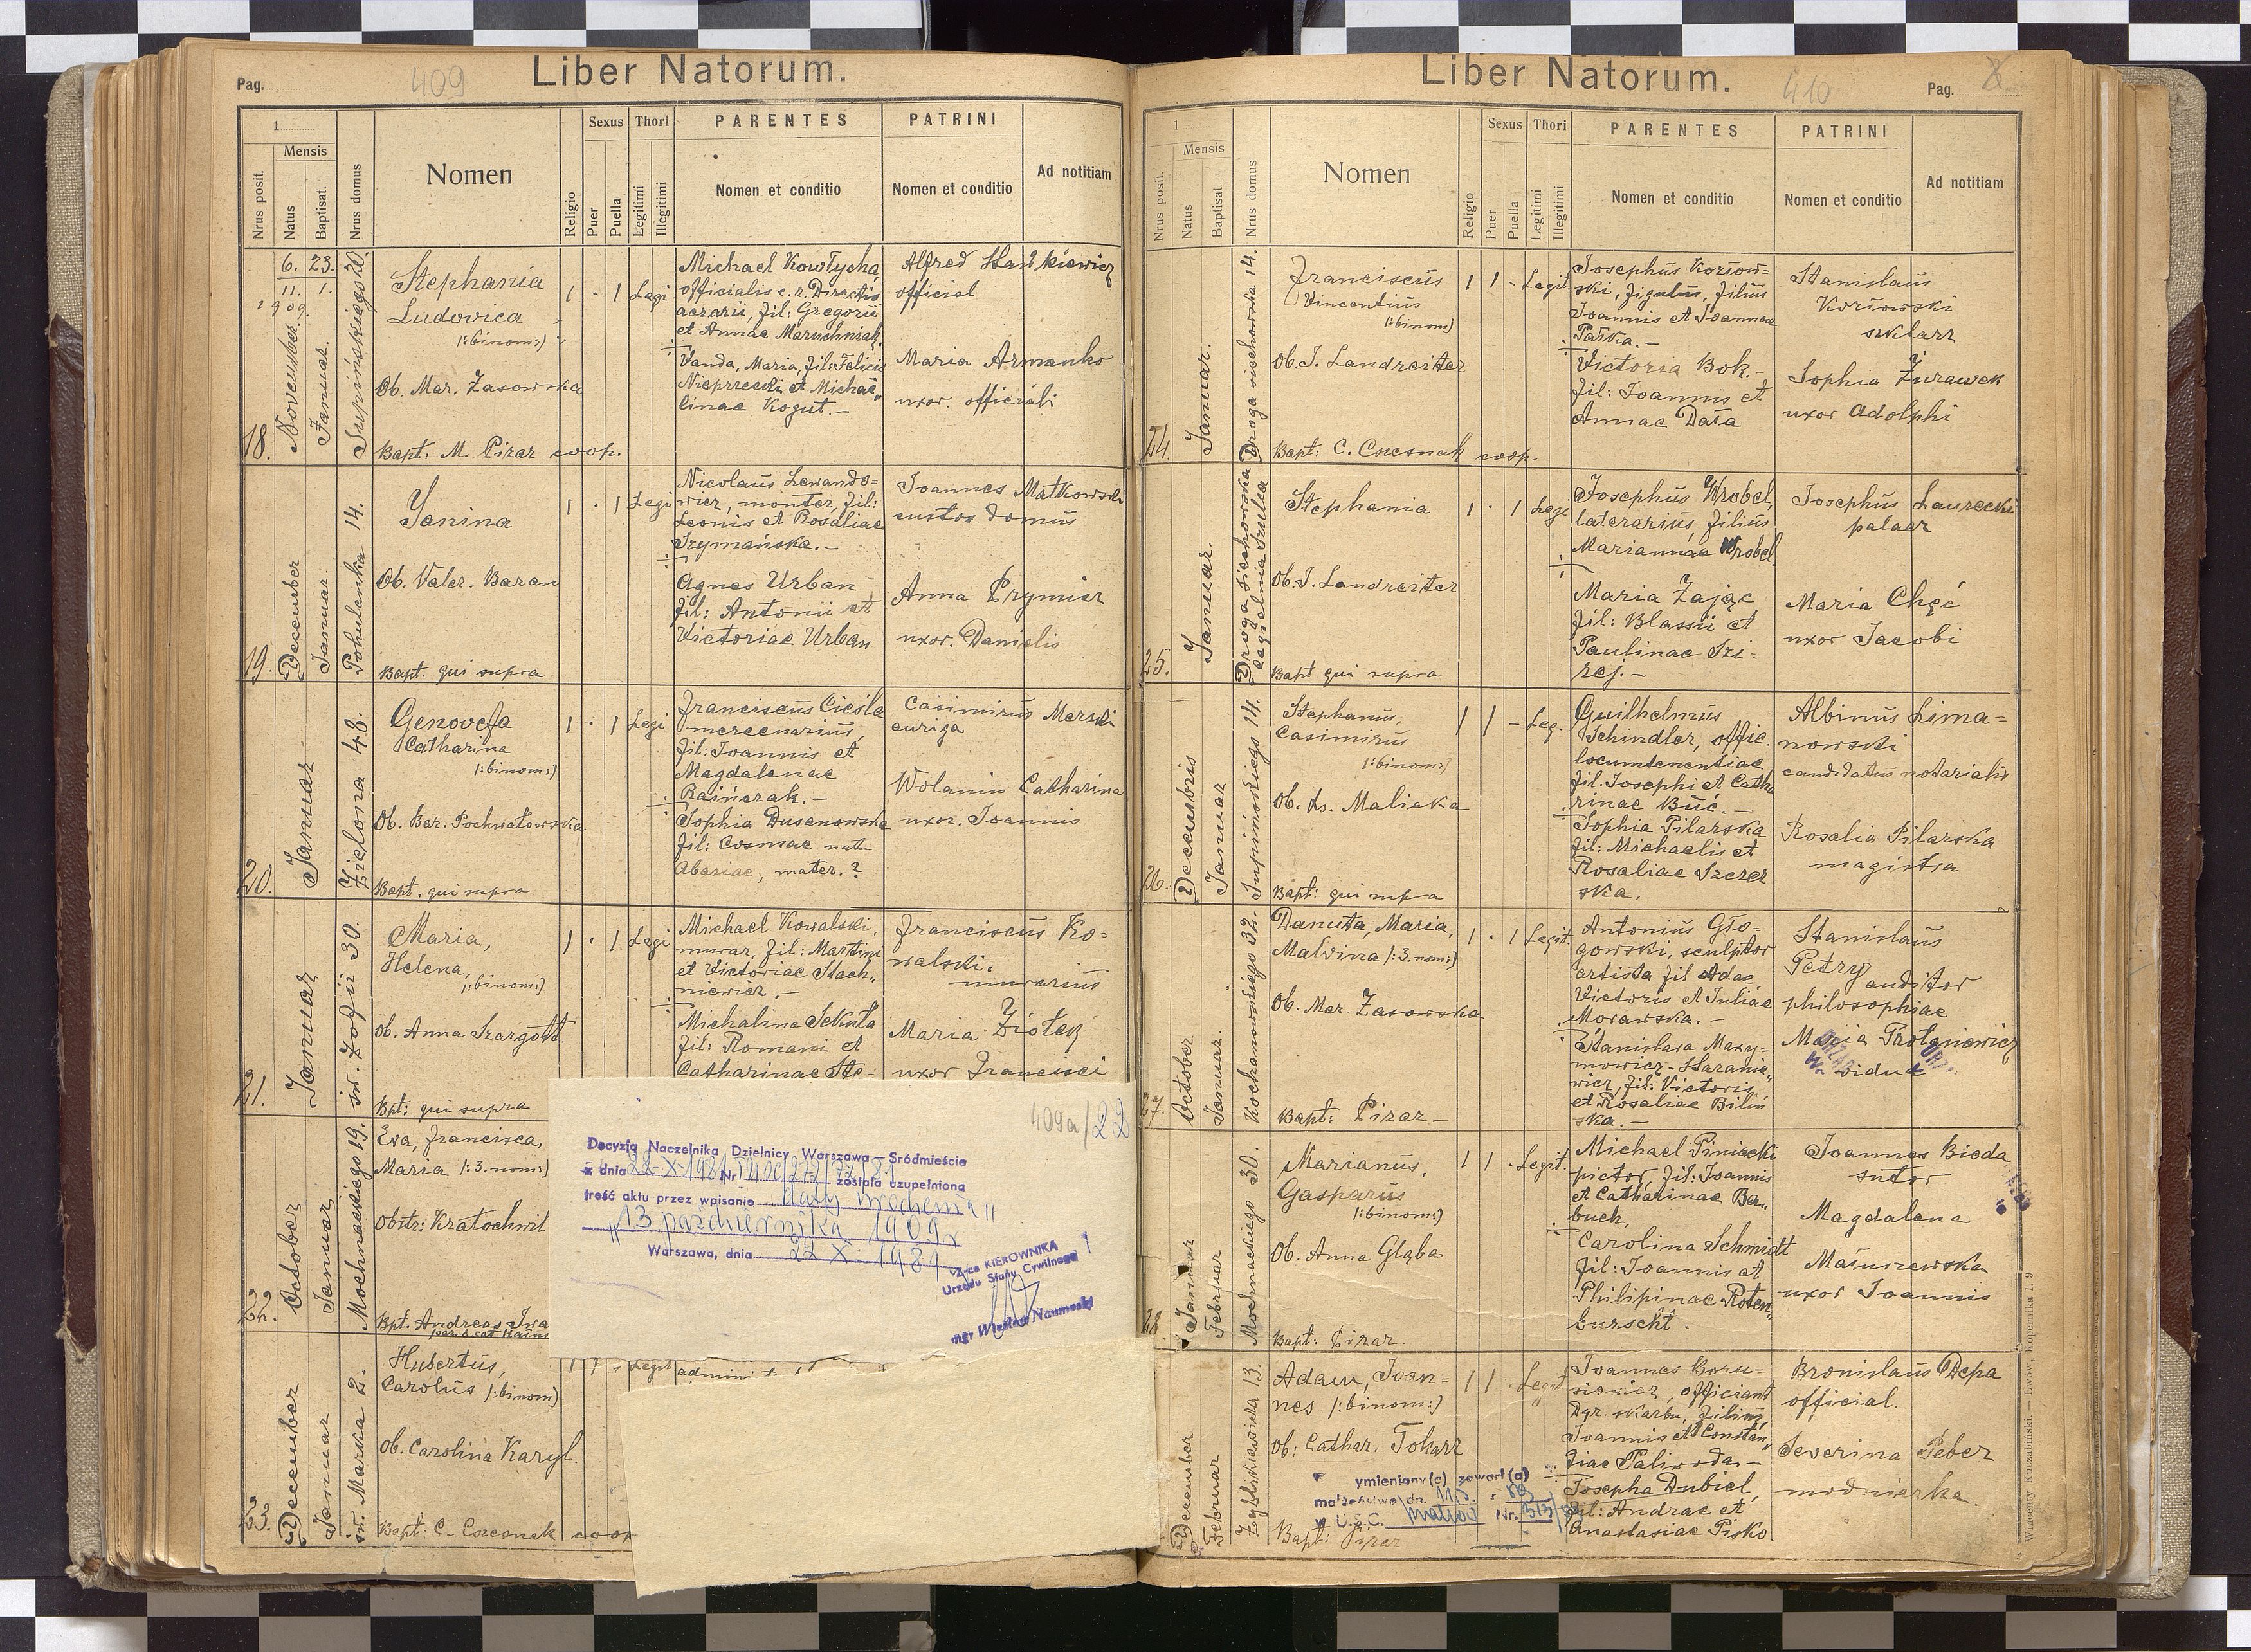 Pag.
409
Liber Natorum.
1
Nrus posit.
Mensis
Natus
Baptisat.
Nrus domus
Nomen
Religio
Sexus
Puer
Puella
Thori
Legitimi
Illegitimi
PARENTES
Nomen et conditio
PATRINI
Nomen et conditio
Ad notitiam
18.
6. 23.
11. 1.
1909.
November
Januar.
Supińskiego 20.
Stephania
Ludovica
/:binom:/
Ob. Mar. Zasowska
Bapt: M. Pirar coop.
1 . 1 Legi
Michael Kowłycha
officialis c. r. Directis
aerarii, fil: Gregorii
et Annae Maruchniak
Vanda, Maria, fil: Felicis
Nieprzecki et Michae
linae Kogut.
Alfred Stankiewicz
official
Maria Armanko
uxor. officiali
19.
December
Januar.
Pohulanka 14.
Janina
Ob. Valer. Baran
Bapt. qui supra
1 . 1 Legi
Nicolaus Lewando=
wicz, monter, fil:
Leonis et Rosaliae
Szymańska.
Agnes Urban
fil: Antonii et
Victoriae Urban
Joannes Matkowski
custos domus
Anna Prymier
uxor. Danielis
20.
Januar
Zielona 48.
Genovefa
Catharina
/:binom:/
Ob. Bar. Pochwatowska
Bapt. qui supra
1 . 1 Legi
Franciscus Cieśla
mercenarius,
fil: Joannis et
Magdalenae
Raińczak.
Sophia Dusanowska
fil: Cosmae
mater.?
Casimirus Merski
auriga
Wolanin Catharina
uxor. Joannis
21.
Januar
św. Zofii 30.
Maria,
Helena,
/:binom:/
Ob. Anna Szargott
Bpt: qui supra
1 . 1 Legi
Michael Kowalski,
murar, fil: Martini
et Victoriae Stach
niewicz.
Michalina Sekuła
fil: Romani et
Catharinae Ste-
Franciscus Ko=
walski.
murarius
Maria Ziołek
uxor Francisci
22.
October
Januar
Mochnackiego 19.
Eva, Francisca,
Maria /:3. nom:/
Obstr: Kratochwil
Bpt. Andreas Iwa
409a/22
Decyzją Naczelnika Dzielnicy Warszawa-Śródmieście
z dnia 22-X-1981 Nr została uzupełniona
treść aktu przez wpisanie daty urodzenia
"13 października 1909r
Warszawa, dnia 22 X 1981
Z-ca KIEROWNIKA
Urzędu Stanu Cywilnego
mgr Wiesław Naumski
23.
December
Januar
św. Marka 2.
Hubertus,
Carolus /:binom/
Ob. Carolina Karyl.
Bapt: C. Czesnak coop
1 1 . Legit
Liber Natorum.
410
Pag.
1
Nrus posit.
Mensis
Natus
Baptisat.
Nrus domus
Nomen
Religio
Sexus
Puer
Puella
Thori
Legitimi
Illegitimi
PARENTES
Nomen et conditio
PATRINI
Nomen et conditio
Ad notitiam
24.
Januar.
Droga wichowska 14.
Franciscus
Vincentius
/:binom:/
Ob. J. Landreiter
Bapt: C. Czesnak coop.
1 1 - Legit.
Josephus Koziow=
ski, figulus, filius
Joannis et Joannae
Pańka.
Victoria Bok.
fil: Joannis et
Annae Data
Stanislaus
Koziowski
szklarz
Sophia Żurawek
uxor Adolphi
25.
Januar.
Droga
cegielnia
Stephania
Ob. J. Landreiter
Bapt qui supra
1 . 1 Legi
Josephus Wrobel,
laterarius, filius
Mariannae Wrobel
Maria Zając
fil: Blasii et
Paulinae Szi-
rej.
Josephus Laurecki
palacz
Maria Chęć
uxor Jacobi
26.
Decembris
Januar
Supińskiego 14.
Stephanus,
Casimirus
/:binom:/
Ob. Maliska
Bapt: qui supra
1 1 - Leg.
Guilhelmus
Schindler, offic.
locumtenentiae
fil. Josephi et Catha
rinae Buć.
Sophia Pilarska
fil: Michaelis et
Rosaliae Szczer
ska.
Albinus Lima=
nowski
candidatus notarialis
Rosalia Pilarska
magistra
27.
October
Januar.
Kochanowskiego 32.
Danuta, Maria,
Malvina /:3. nom:/
Ob. Mar. Zasowska
Bapt: Pirar
1 . 1 Legit.
Antonius Gło-
gowski, sculptor
artista fil Adae
Victoris et Juliae
Morawska.
Stanislava Maxy=
mowicz-Harasie
wicz, fil: Victoris
et Rosaliae Biliń
ska.
Stanislaus
Petry
auditor
philosophiae
Maria Protaniewicz
vidua
28.
Januar
Februar
Mochnackiego 30.
Marianus,
Gasparus
/:binom:/
Ob. Anna Głąba
Bapt: Pirar
1 1 . Legit.
Michael Piniacki
pictor, fil: Joannis
et Catharinae Ba-
buch,
Carolina Schmidt
fil: Joannis et
Philipinae Roten
burscht.
Joannes Bieda
sutor
Magdalena
Maśuszewska
uxor Joannis
December
Februar
Zyblikiewicza 13.
Adam, Joan-
nes /:binom:/
Ob: Cathar. Tokarz
Bapt: Pirar
1 1 . Legit
ymieniony(a) zawarł(a)
małżeństwo dn. 11.5.
w U.S.C. Nr. 313/
Joannes Boru=
siewicz, officiant
Dyr. skarbu, filius,
Joannis et Constan
tiae Paliwoda.
Josepha Dubiel,
fil: Andrae et
Anastasiae Pisko
Bronislaus Depa
official.
Severina Peber
modniarka.
Wincenty Kuczabiński — Lwów, Kopernika l. 9